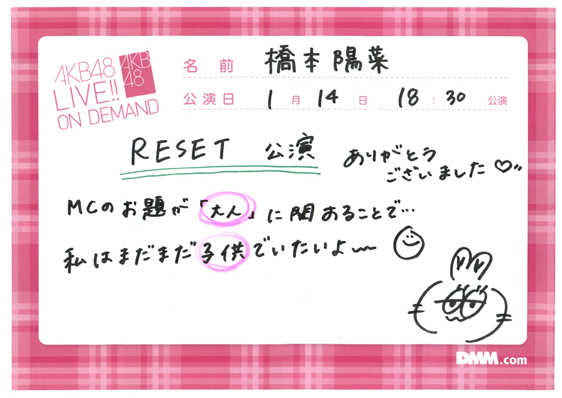 AKB48
LIVE!!
ON DEMAND
AKB
48
名前 橋本陽菜
公演日 1月14日 18:30公演
RESET 公演
ありがとう
ございました♡
MCのお題が「大人」に関あることで…
私はまだまだ子供でいたいよ〜
DMM.com